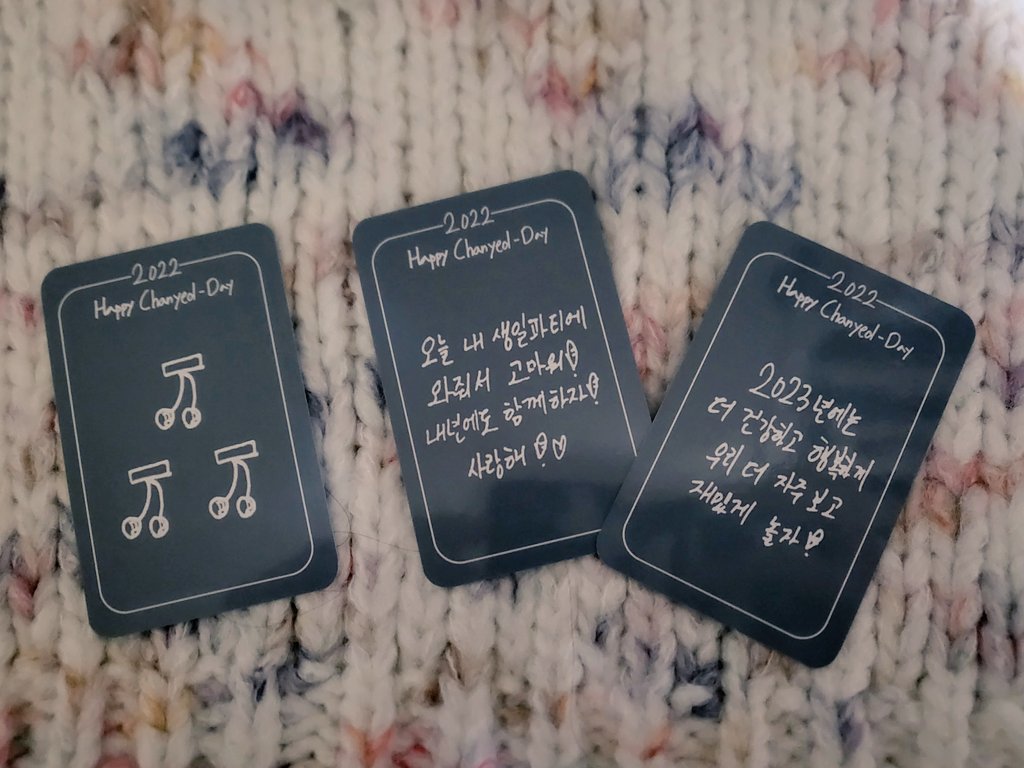 2022
Happy Chanyeol-Day
2022
Happy Chanyeol-Day
오늘 내 생일파티에
와줘서 고마워!
내년에도 함께하자!
사랑해!♡
2022
Happy Chanyeol-Day
2023년에는
더 건강하고 행복하게
우리 더 자주 보고
재밌게 놀자!